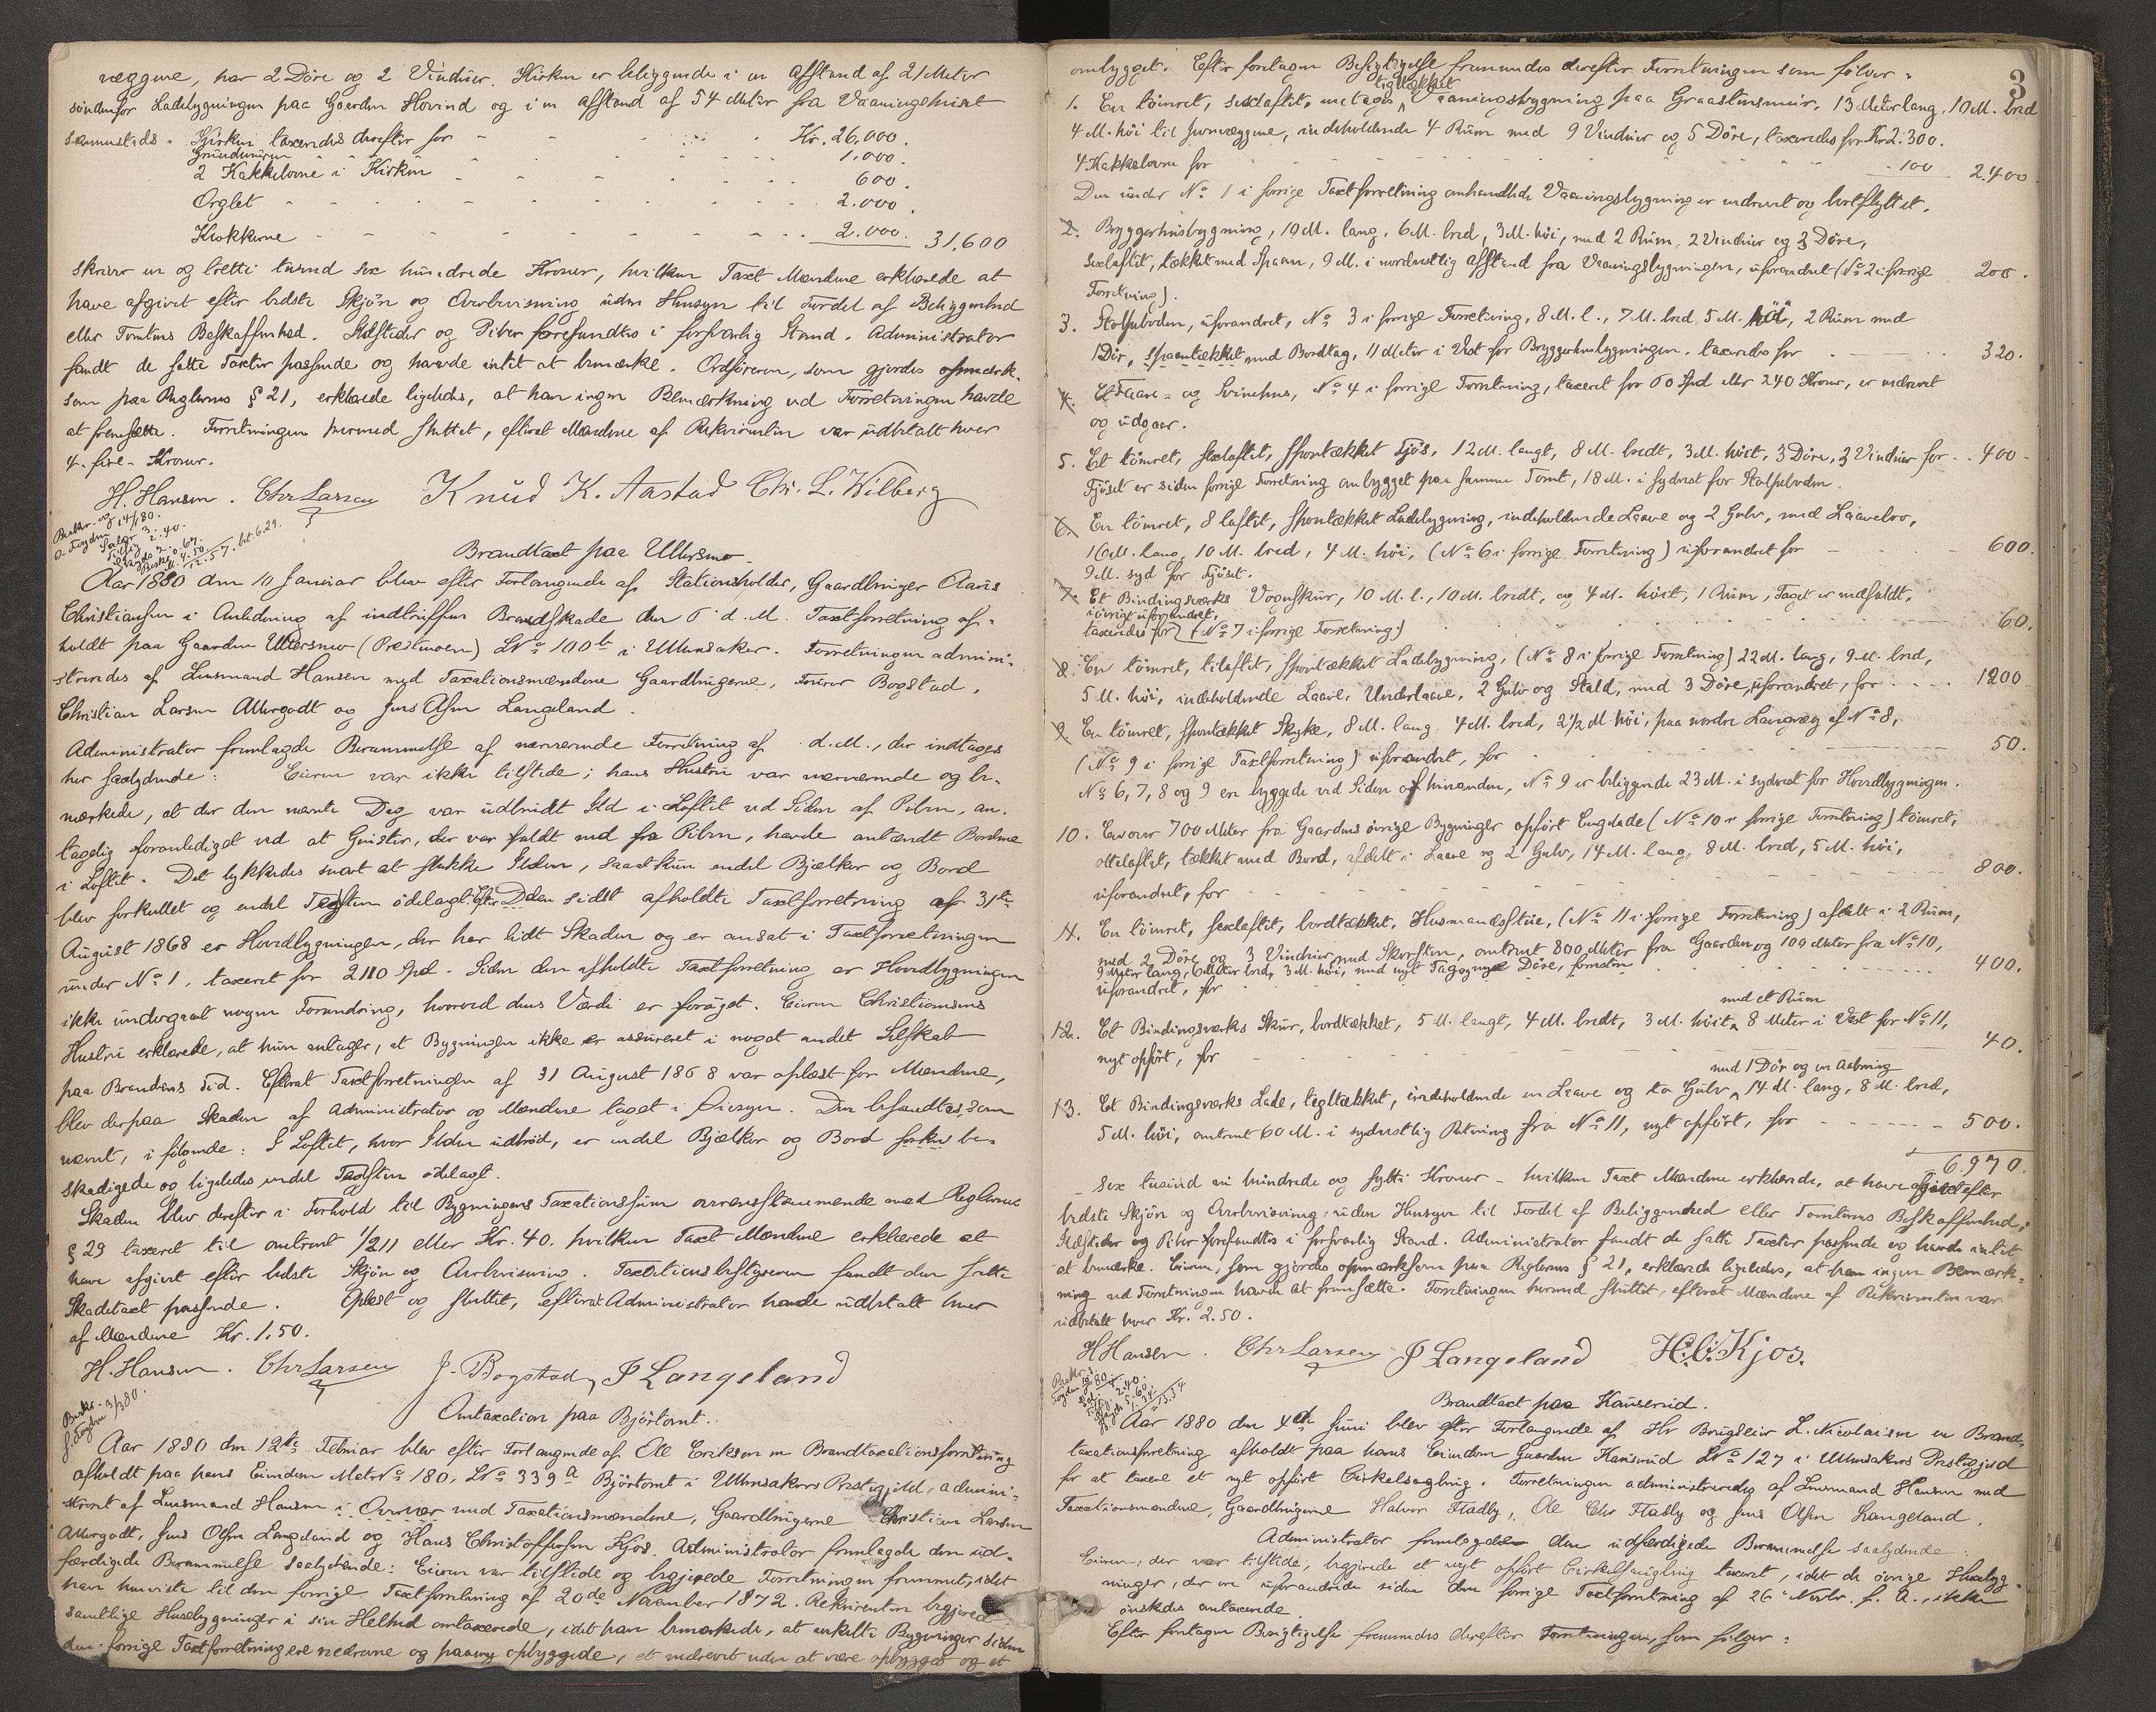 væggene, har 2 Döre og 2 Vinduer. Kirken er beliggende i en Afstand af 21 Meter
söndenfor Ladebygningen paa Gaarden Hovind og i en Afstand af 54 Meter fra Vaaningshuset
sammesteds. Kirken taxeredes derefter for Kr. 26,000.
Grundmuren 1.000.
2 Kakkelovne i Kirken 600.
Orglet 2.000.
Klokkerne 2.000. 31,600
skriver en og tretti tusind sex hundrede Kroner, hvilken Taxt Mændene erklærede at
have afgivet efter bedste Skjön og Overbevisning uden Hensyn til Fordel af Beliggenhed
eller Tomtens Beskaffenhed. Ildsteder og Piber forefandtes i forsvarlig Stand. Administrator
fandt de satte Taxter passende og havde intet at bemærke. Ordföreren, som gjordes opmærk-
som paa Reglernes § 21, erklærede ligeledes, at han ingen Bemærkning ved Forretningen havde
at fremsætte. Forretningen hermed sluttet, efterat Mændene af Rekvirenten var udbetalt hver
4 - fire - Kroner.
H. Hansen. Chr Larsen Knud K. Aastad Chr. L. Wilberg
Brandtaxt paa Ullersmo
Aar 1880 den 10 Januar blev efter Forlangende af Stationsholder, Gaardbruger Claus
Christiansen i Anledning af indtruffen Brandskade den 6 d. M. Taxtforretning af-
holdt paa Gaarden Ullersmo (Prestmoen) LNo 100b i Ullensaker. Forretningen admini-
streredes af Lensmand Hansen med Taxationsmændene Gaardbrugerne, Fourer Bogstad,
Christian Larsen Allergodt og Jens Olsen Langeland.
Administrator fremlagde Berammelse af nærværende Forretning af d. M., der indtages
her saalydende: Eieren var ikke tilstede; hans Hustru var nærværende og be-
mærkede, at der den nævnte Dag var udbrudt Ild i Loftet ved Siden af Piben, an-
tagelig foranlediget ved at Gnister, der var faldt ned fra Piben, havde antændt Bordene
i Loftet. Det lykkedes snart at slukke Ilden, saa at kun endel Bjælker og Bord
blev forkullet og endel Tagsten ödelagt. Efter Den sidst afholdte Taxtforretning af 31te
August 1868 er Hovedbygningen, der har lidt Skaden og er ansat i Taxtforretningen
under No 1, taxeret for 2110 Spd. Siden den afholdte Taxtforretning er Hovedbygningen
ikke undergaaet nogen Forandring, hvorved dens Værdi er foröget. Eieren Christiansens
Hustru erklærede, at hun antager, at Bygningen ikke er assureret i noget andet Selskab
paa Brandens Tid. Efterat Taxtforretningen af 31 August 1868 var oplæst for Mændene,
blev derpaa Skaden af Administrator og Mændene taget i Öiesyn. Den befandtes, som
nævnt, i fölgende: I Loftet, hvor Ilden udbröd, er endel Bjælker og Bord forku be-
skadigede og ligeledes endel Tagsten ödelagt.
Skaden blev derefter i Forhold til Bygningens Taxationssum overensstemmende med Reglernes
§ 29 taxeret til omtrent 1/211 eller Kr. 40. hvilken Taxt Mændene erklærede at
have afgivet efter bedste Skjön og Overbevisning. Taxationsbestyreren fandt den satte
Skadetaxt passende. Oplæst og sluttet, efterat Administrator havde udbetalt hver
af Mændene Kr. 1.50.
H. Hansen. Chr Larsen J. Bogstad, J Langeland
Omtaxation paa Björtomt.
Aar 1880 den 12te Februar blev efter Forlangende af Ole Eriksen en Brandtaxationsforretning
afholdt paa hans Eiendom Matr No 180, LNo 339a Björtomt i Ullensakers Prestegjeld, admini-
streret af Lensmand Hansen i Overvær med Taxationsmændene, Gaardbrugerne Christian Larsen
Allergodt, Jens Olsen Langeland og Hans Christoffersen Kjos. Administrator fremlagde den ud-
færdigede Berammelse saalydende: Eieren var tilstede og begjærede Forretningen fremmet, idet
han henviste til den forrige Taxtforretning af 20de November 1872. Rekvirenten begjærede
samtlige Husebygninger i sin Helhed omtaxerede, idet han bemærkede, at enkelte Bygninger siden
den forrige Taxtforretning ere nedrevne og paany opbyggede, et nedrevet uden at være opbygget og et
3
ombygget. Efter foretagen Besigtigelse fremmedes derefter Forretningen som fölger:
tegltækket
1. En tömret, sexlaftet, Vaaningsbygning paa Graastensmur, 13 Meter lang, 10 M. bred
4 M. höi til Jevnvæggene, indeholdende 4 Rum med 9 Vinduer og 5 Döre, taxeredes for Kr 2.300.
4 Kakkelovne for 100 2.400.
Den under No 1 i forrige Taxtforretning omhandlede Vaaningsbygning er nedrevet og bortflyttet.
2. Bryggerhusbygning, 10 M. lang, 6 M. bred, 3 M. höi, med 2 Rum, 2 Vinduer og 3 Döre,
sexlaftet, tækket med Spaan, 9 M. i nordvestlig Afstand fra Vaaningsbygningen, uforandret (No 2 i forrige 200.
Forretning).
3. Stolpeboden, uforandret, No 3 i forrige Forretning, 8 M. l., 7 M. bred 5 M. höi, 2 Rum med
1 Dör, spaantækket med Bordtag, 11 Meter i Vest for Bryggerhusbygningen, taxeredes for 320.
4. Et Faare- og Svinehus, No 4 i forrige Forretning, taxeret for 60 Spd eller 240 Kroner, er nedrevet
og udgaar.
5. Et tömret, sexlaftet, spontækket Fjös, 12 M. langt, 8 M. bredt, 3 M. höit, 3 Döre, 3 Vinduer for 400.
Fjöset er siden forrige Forretning ombygget paa samme Tomt, 18 M. i Sydvest for Stolpeboden.
6. En tömret, 8 laftet, spontækket Ladebygning, indeholdende Laave og 2 Gulv, med Laavebro,
16 M. lang, 10 M. bred, 4 M. höi, (No 6 i forrige Forretning) uforandret for 600.
9 M. syd for Fjöset.
7. Et Bindingsværks Vognskur, 10 M. l., 10 M. bredt, og 4 M. höit, 1 Rum, Taget er nedfaldt,
iövrigt uforandret,
taxeredes for (No 7 i forrige Forretning:) 60.
8. En tömret, tilaftet, spontækket Ladebygning, (No 8 i forrige Forretning) 22 M. lang, 9 M. bred,
5 M. höi, indeholdende Laave, Underlaave, 2 Gulv og Stald, med 3 Döre, uforandret, for 1200
9. En tömret, spontækket Skykke, 8 M. lang 4 M. bred, 2 1/2 M höi, paa nordre Langvæg af No 8,
(No 9 i forrige Taxtforretning) uforandret, for 50.
No 6, 7, 8 og 9 ere byggede ved Siden af hinanden, No 9 er beliggende 23 M. i sydvest for Hovedbygningen.
10. En over 700 Meter fra Gaardens övrige Bygninger opfört Englade (No 10 i forrige Forretning) tömret,
ottelaftet, tækket med Bord, afdelt i Laave og 2 Gulv, 14 M. lang, 8 M. bred, 5 M. höi,
uforandret, for 800.
11. En tömret, sexlaftet, bordtækket, Husmandsstue, (No 11 i forrige Forretning) afdelt i 2 Rum,
med 2 Döre og 3 Vinduer med Skorsten, omtrent 800 Meter fra Gaarden og 100 Meter fra No 10,
9 Meter lang, 6 Meter bred, 3 M. höi, med nyt Tag og nye Döre, forresten
uforandret, for 400.
med et Rum
12. Et Bindingsværks Skur, bordtækket, 5 M. langt, 4 M. bredt, 3 M. höit, 8 Meter i Vest for No 11,
nyt opfört, for 40.
med 1 Dör og en Aabning
13. Et Bindingsværks Lade, tegltækket, indeholdende en Laave og to Gulv, 14 M. lang, 8 M. bred,
5 M. höi, omtrent 60 M. i sydvestlig Retning fra No 11, nyt opfört, for 500.
6.970.
- sex tusind ni hundrede og sytti Kroner - hvilken Taxt Mændene erklærede, at have afgivet efter
bedste Skjön og Overbevisning, uden Hensyn til Fordel af Beliggenhed eller Tomternes Beskaffenhed.
Ildsteder og Piber forefandtes i forsvarlig Stand. Administrator fandt de satte Taxter passende og havde intet
at bemærke. Eieren, som gjordes opmærksom paa Reglernes § 21, erklærede ligeledes, at han ingen Bemærk-
ning ved Forretningen havde at fremsætte. Forretningen hermed sluttet, efterat Mændene af Rekvirenten var
udbetalt hver Kr. 2.50.
H Hansen. Chr Larsen J Langeland H. C. Kjos.
Brandtaxt paa Kauserud.
Aar 1880 den 4de Juni blev efter Forlangende af Hr Brugseier L. Nicolaisen en Brand-
taxationsforretning afholdt paa hans Eiendom Gaarden Kauserud LNo 127 i Ullensakers Prestegjeld
for at taxere et nyt opfört Cirkelsagbrug. Forretningen administreredes af Lensmand Hansen med
Taxationsmændene, Gaardbrugerne Halvor Fladby, Ole Chr Fladby og Jens Olsen Langeland.
Administrator fremlagde den udfærdigede Berammelse saalydende:
Eieren, der var tilstede, begjærede et nyt opfört Cirkelsagbrug taxeret, idet de övrige Husebyg-
ninger, der ere uforandrede siden den forrige Taxtforretning af 26 Novbr. f. A., ikke
önskedes omtaxerede.
Efter foretagen Besigtigelse fremmedes derefter Forretningen, som fölger: